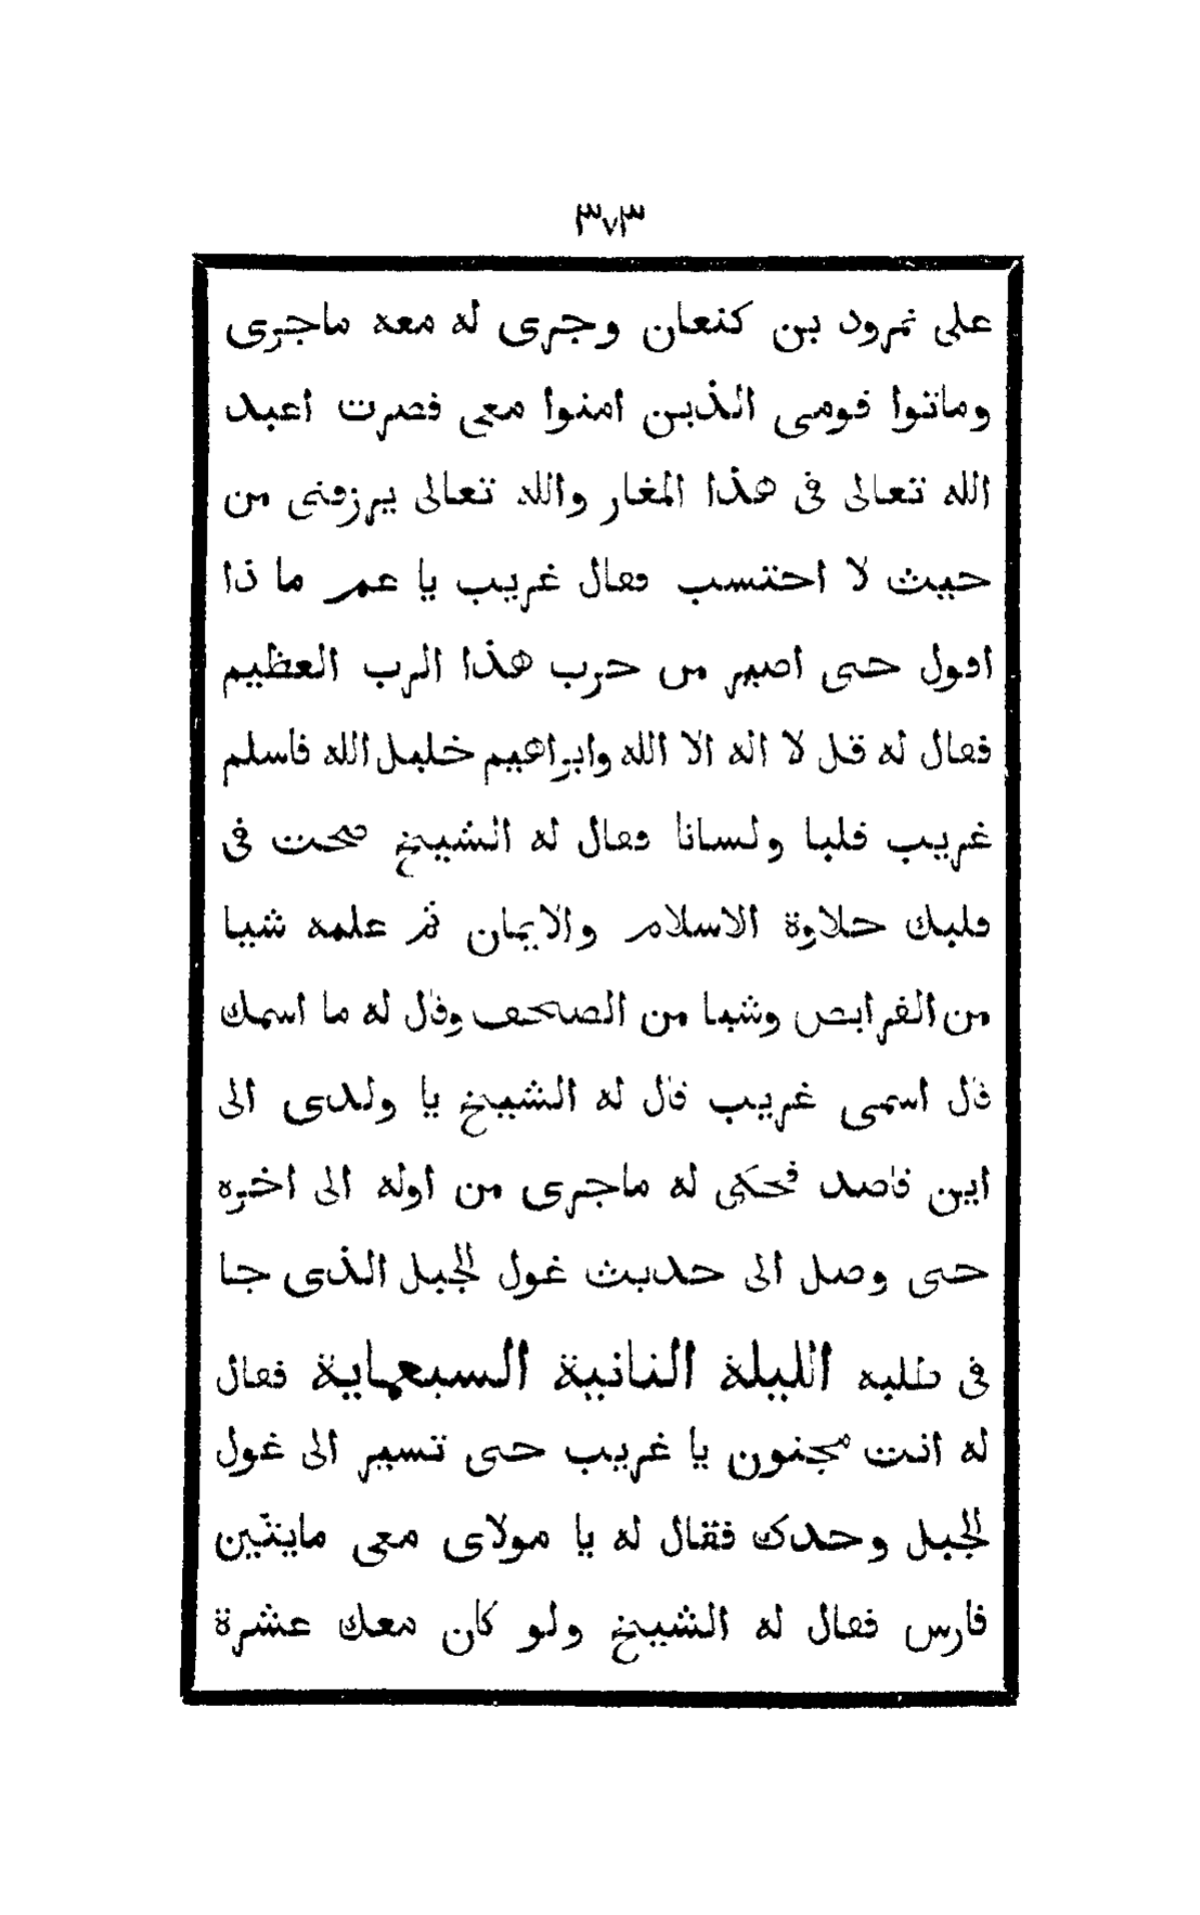 ٣٧٣
على نمرود بن كنعان وجرى له معه ماجرى
وماتوا قومى الذين امنوا معى فصرت اعبد
الله تعالى فى هذا المغار والله تعالى يرزقنى من
حيث لا احتسب فقال غريب يا عم ما ذا
اقول حتى اصير من حرب هذا الرب العظيم
فقال له قل لا اله الا الله وابراهيم خليل الله فاسلم
غريب قلبا ولسانا فقال له الشيخ صحت فى
قلبك حلاوة الاسلام والايمان ثم علمه شيا
من الفرايص وشيا من الصحف وقال له ما اسمك
قال اسمى غريب قال له الشيخ يا ولدى الى
اين قاصد فحكى له ماجرى من اوله الى اخره
حتى وصل الى حديث غول الجبل الذى جا
فى طلبه الليلة الثانية السبعماية فقال
له انت مجنون يا غريب حتى تسير الى غول
الجبل وحدك فقال له يا مولاى معى مايتين
فارس فقال له الشيخ ولو كان معك عشرة